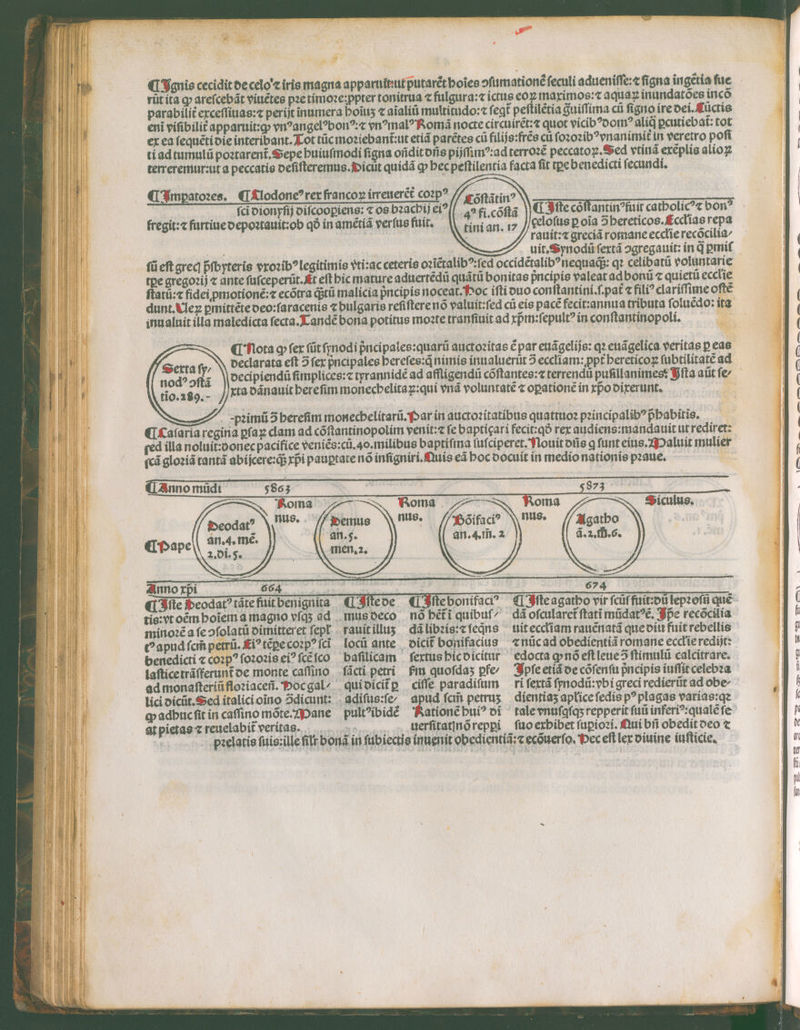 ¶Ignis cecidit de celo:⁊ iris magna apparuit:ut putarēt hoīes ↄsumationē seculi adueniſſe:⁊ ſigna ingētia fue
rūt ita ꝙ areſcebāt viuētes pre timore:ꝓpter tonitrua ⁊ fulgura:⁊ ictus eoꝝ maximos:⁊ aquaꝝ inundatōes incō
parabilit̄ exceſſiuas:⁊ perijt inumera hoīuꝫ ⁊ aīaliū multitudo:⁊ ſeqt̄ peſtilētia ḡuiſſima cū ſigno ire dei. Cūctis
eni viſibilit̄ apparuit:ꝙ vn⁹ angel⁹ bon⁹:⁊ vn⁹ mal⁹ Romā nocte circuirēt:⁊ quot vicib⁹ dom⁹ aliq̄ ꝑcutiebat̄: tot
ex ea ſequēti die interibant. Tot tūc moriebant̄:ut etiā parētes cū filijs:frēs cū ſororib⁹ vnanimit̄ in veretro poſi
ti ad tumulū portarent̄. Sepe huiuſmodi ſigna oñdit dñs pijſſim⁹:ad terrorē peccatoꝝ. Sed vtinā exēplis alioꝝ
terreremur:ut a peccatis deſiſteremus. Dicūt quidā ꝙ hec peſtilentia facta ſit tꝑe benedicti ſecundi.
¶Impatores. ¶Clodone⁹ rex francoꝝ irreuerēt̄ corp⁹
ſci dionyſij diſcooꝑiens: ⁊ os brachij ei⁹
fregit:⁊ furtiue deportauit:ob qđ in amētiā verſus fuit.
Cōſtātin⁹
4⁹ fi.cōſtā
tini an. 17
¶Iſte cōſtantin⁹ fuit catholic⁹ ⁊ bon⁹
çeloſus ꝑ oīa ↄ̄ hereticos. Eccl'ias repa
rauit:⁊ greciā romane eccl'ie recōcilia⸗
uit. Synodū ſextā ↄgregauit: in q̄ ꝑmiſ
ſū eſt grecꝭ p̄ſbyteris vxorib⁹ legitimis vti:ac ceteris oriētalib⁹:ſed occidētalib⁹ nequaꝗ̄: qꝛ celibatū voluntarie
tꝑe gregorij ⁊ ante ſuſceperūt. Et eſt hic mature aduertēdū quātū bonitas p̄ncipis valeat ad bonū ⁊ quietū eccl'ie
ſtatū:⁊ fidei ꝓmotionē:⁊ ecōtra ꝗ̄tū malicia p̄ncipis noceat. Hoc iſti duo conſtantini.ſ.pat̄ ⁊ fili⁹ clariſſime oſtē
dunt. Uerꝝ ꝑmittēte deo:ſaracenis ⁊ bulgaris reſiſtere nō valuit:ſed cū eis pacē fecit:annua tributa ſoluēdo: ita
inualuit illa maledicta ſecta. Tandē bona potitus morte tranſiuit ad xp̄m:ſepult⁹ in conſtantinopoli.
Sexta ſy⸗
nod⁹ ↄſtā
tīo.289.-
¶Nota ꝙ ſex ſūt ſynodi p̄ncipales:quarū auctoritas ē par euāgelijs: qꝛ euāgelica veritas ꝑ eas
declarata eſt ↄ̄ ſex p̄ncipales hereſes:q̄ nimis inualuerūt ↄ̄ eccl'iam:ꝓpt̄ hereticoꝝ ſubtilitatē ad
decipiendū ſimplices:⁊ tyrannidē ad affligendū cōſtantes:⁊ terrendū puſillanimes. Iſta aūt ſe⸗
xta dānauit hereſim monechelitaꝝ:qui vnā voluntatē ⁊ oꝑationē in xp̄o dixerunt.
-primū ↄ̄ hereſim monechelitarū. Par in auctoritatibus quattuor principalib⁹ p̄habitis.
¶Caſaria regina ꝑſaꝝ clam ad cōſtantinopolim venit:⁊ ſe baptiçari fecit:qđ rex audiens:mandauit ut rediret:
ſed illa noluit:donec pacifice veniēs:cū.40.milibus baptiſma ſuſciperet. Nouit dñs q̄ ſunt eius. Maluit mulier
ſcā gloriā tantā abijcere:ꝗ̄ xp̄i pauꝑtate nō inſigniri. Quis eā hoc docuit in medio nationis praue.
¶Anno mūdi 5863 5873
¶Pape
Deodat⁹
an.4.mē.
2.di.5.
Roma
nus.
Demus
an.5.
men.2.
Roma
nus.
Bōifaci⁹
an.4.m̄.2
Roma
nus.
Agatho
ā.2.m̄.6.
Siculus.
Anno xp̄i 664 674
¶Iſte Deodat⁹ tāte fuit benignita
tis:vt oēm hoīem a magno vſqꝫ ad
minorē a ſe ↄſolatū dimitteret ſepl'
t⁹ apud ſcm̄ petrū. Ei⁹ tꝑe corp⁹ ſci
benedicti ⁊ corp⁹ ſororis ei⁹ ſcē ſco
laſtice trāſferunt̄ de monte caſſino
ad monaſteriū floriaceñ. Hoc gal⸗
lici dicūt. Sed italici oīno ↄ̄dicunt:
ꝙ adhuc ſit in caſſino mōte. Mane
at pietas ⁊ reuelabit̄ veritas.
¶Iſte de
mus deco
rauit illuꝫ
locū ante
baſilicam
ſācti petri
qui dicit̄ ꝑ
adiſus:ſe⸗
pult⁹ ibidē
¶Iſte bonifaci⁹
nō hēt̄ i quibuſ⸗
dā libris:⁊ ſeq̄ns
dicit̄ bonifacius
ſextus hic dicitur
ſm̄ quoſdaꝫ ꝑſe⸗
ciſſe paradiſum
apud ſcm̄ petruꝫ
Rationē hui⁹ di
uerſitatꝭ nō reppi
¶Iſte agatho vir ſcūſ fuit:dū leproſū quē
dā oſcularet̄ ſtatī mūdat⁹ ē. Ip̄e recōcilia
uit eccl'iam rauēnatā que diu fuit rebellis
⁊ nūc ad obedientiā romane eccl'ie redijt:
edocta ꝙ nō eſt leue ↄ̄ ſtimulū calcitrare.
Ipſe etiā de cōſenſu p̄ncipis iuſſit celebra
ri ſextā ſynodū:vbi greci redierūt ad obe⸗
dientiaꝫ apl'ice ſedis ꝑ⁹ plagas varias:qꝛ
tale vnuſqſqꝫ repperit ſuū inferi⁹:qualē ſe
ſuo exhibet ſuꝑiori. Qui bñ obedit deo ⁊
prelatis ſuis:ille ſilr̄ bonā in ſubiectis inuenit obedientiā:⁊ ecōuerſo. Hec eſt lex diuine iuſticie.